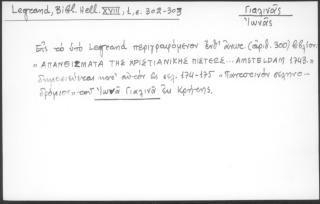 Legrand, Bibl. Hell. XVIII, 1, σ. 302-303
Γιαλινᾶς
Ἰωνᾶς
Εἰς τὸ ὑπὸ Legrand περιγραφόμενον ἐνθ' ἄνωτ. (ἀριθ. 300) βιβλίον
„ΑΠΑΝΘΙΣΜΑΤΑ ΤΗΣ ΧΡΙΣΤΙΑΝΙΚΗΣ ΠΙΣΤΕΩΣ... AMSTELDAM 1743."
δημοσιεύεται κατ' αὐτὸν ἐν σελ. 174-175 „Πανσεπτον
δρόμιον" τοῦ Ἰωνᾶ Γιαλινᾶ ἐκ Κρήτης.